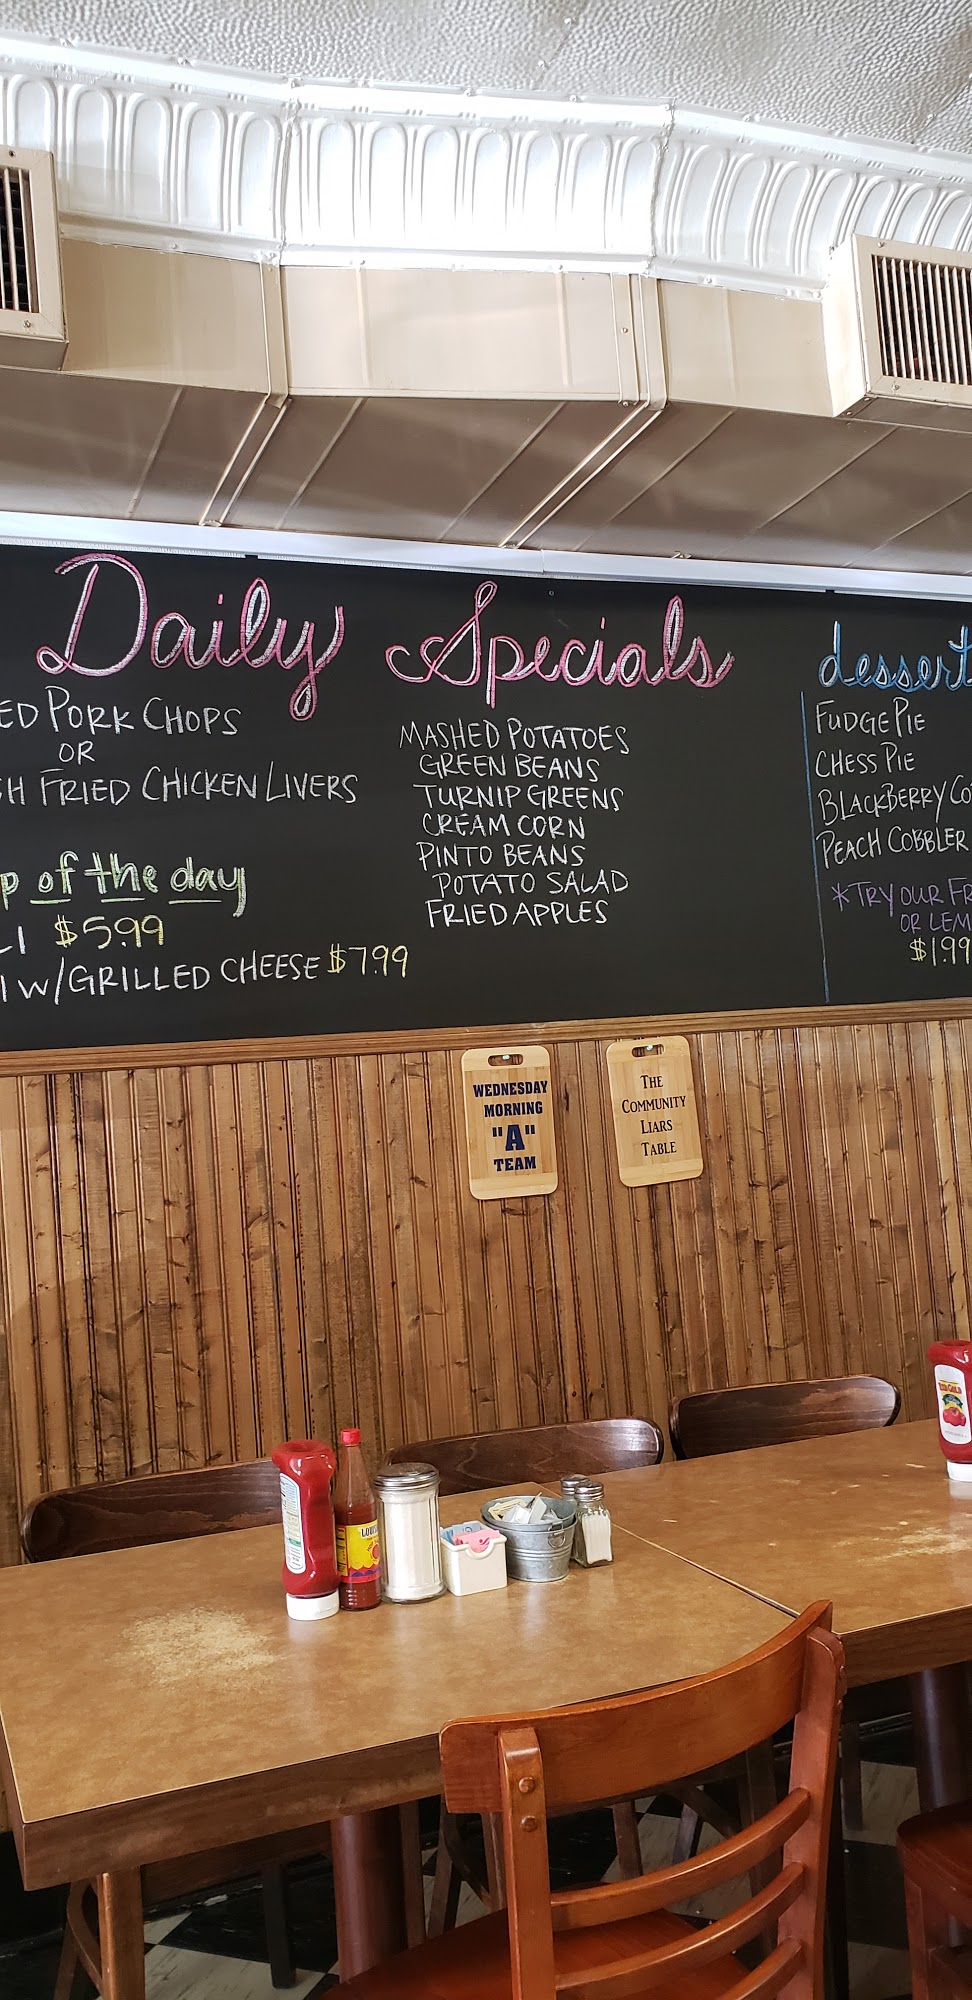 Daily Specials
ED PORK CHOPS
OR
SH FRIED CHICKEN LIVERS
p of the day
LI $5.99
I W/GRILLED CHEESE $7.99
MASHED POTATOES
GREEN BEANS
TURNIP GREENS
CREAM CORN
PINTO BEANS
POTATO SALAD
FRIED APPLES
dessert
FUDGE PIE
CHESS PIE
BLACKBERRY CO
PEACH COBBLER
*TRY OUR FR
OR LEM
$1.99
WEDNESDAY
MORNING
"A"
TEAM
THE
COMMUNITY
LIARS
TABLE